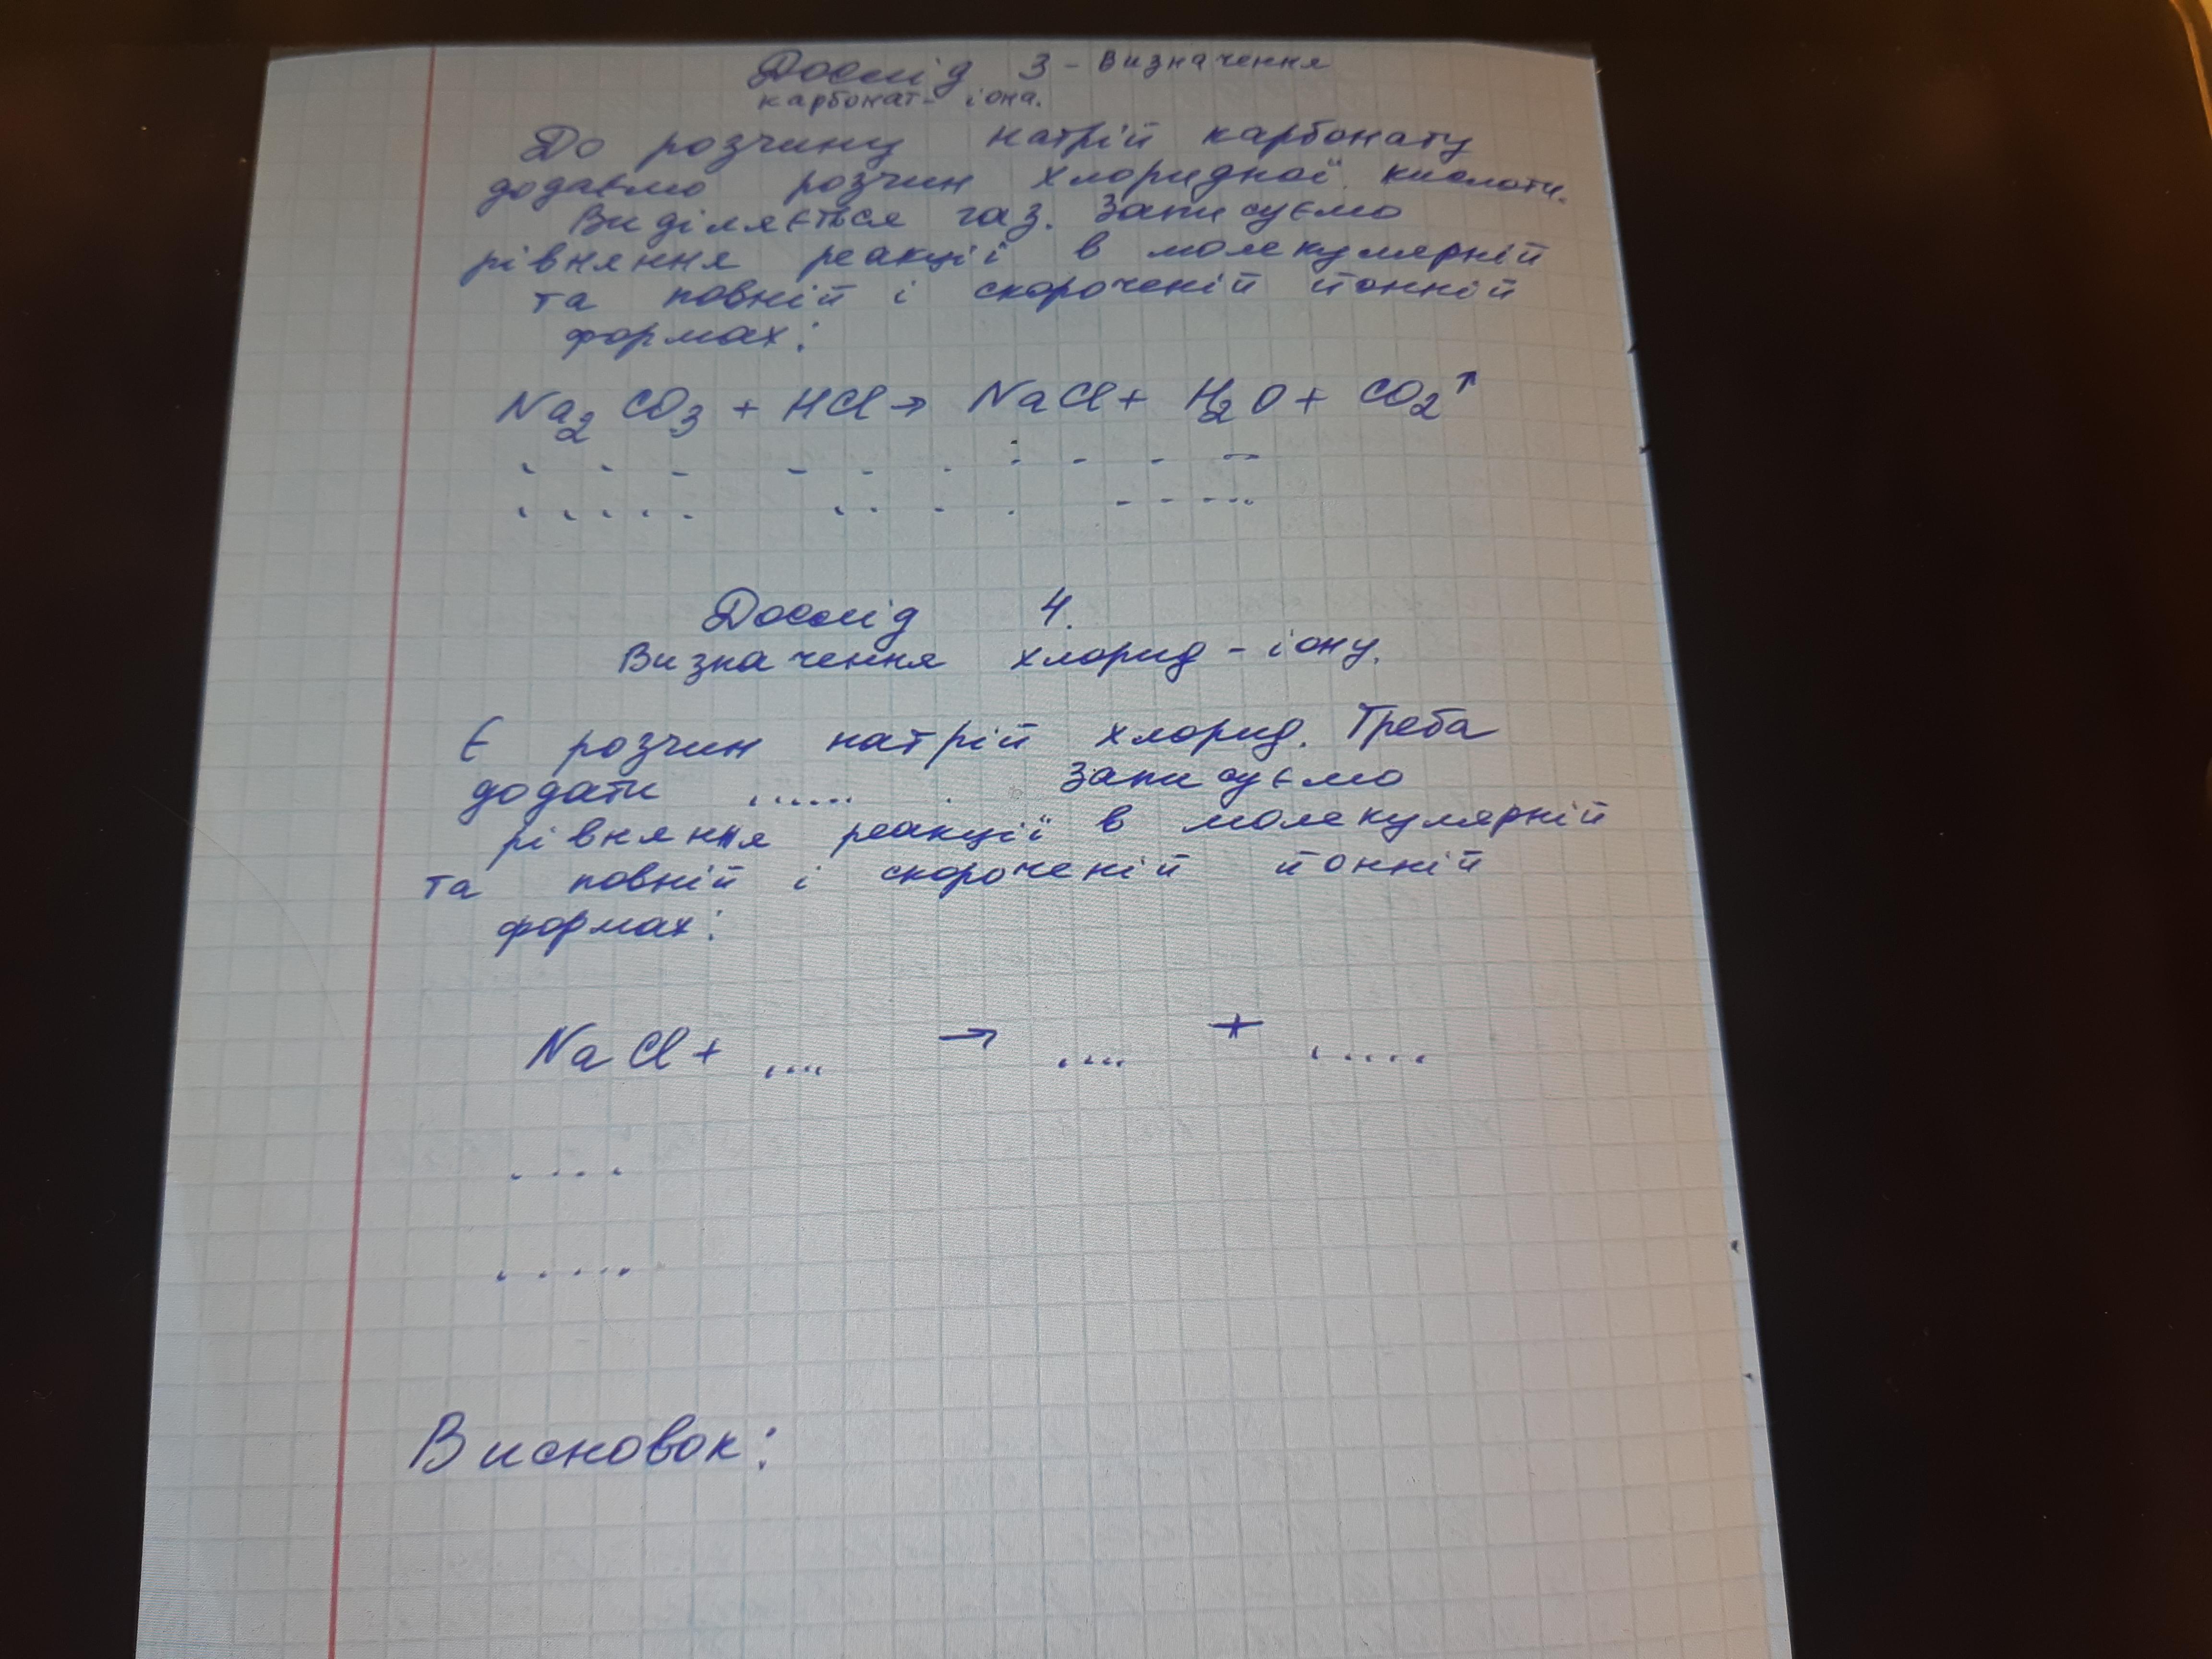 Дослід 3 - Визначення
карбонат- іона.
До розчину натрій карбонату
додаємо розчин хлоридної кислоти.
Виділяється газ. Записуємо
рівняння реакції в молекулярній
та повній і скороченій йонній
формах:
Na₂CO₃ + HCl → NaCl + H₂O + CO₂↑
. . . . . . . . . .
. . . . . . . . . . . . .
Дослід 4.
Визначення хлорид - іону.
Є розчин натрій хлорид. Треба
додати ...... . Записуємо
рівняння реакції в молекулярній
та повній і скороченій йонній
формах:
NaCl + .... → .... + .....
. . . .
. . . . .
Висновок: